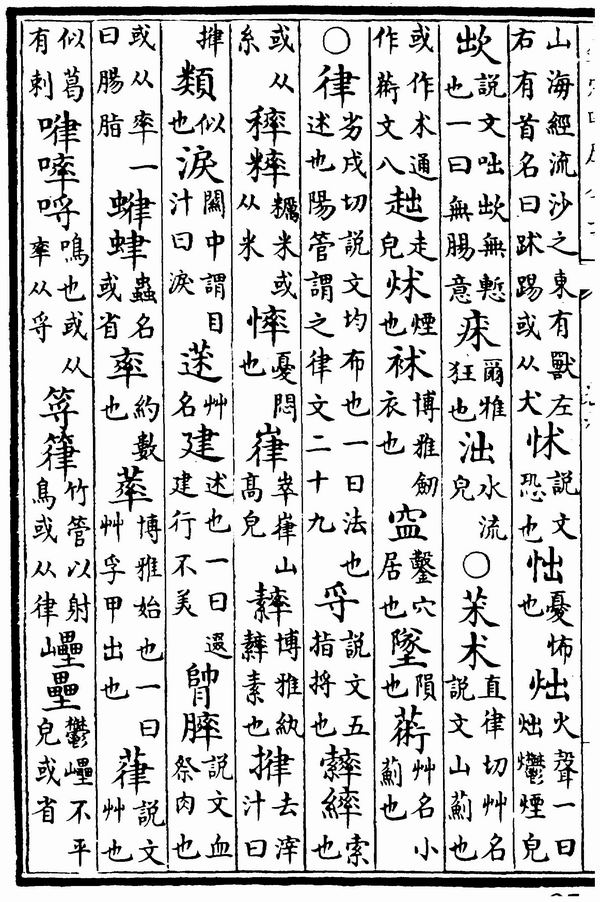 山海經流沙之東有獸左右有首名曰䟣踢或从犬怵說文恐也㤕憂怖也炪火聲一曰炪鬱煙皃
欪說文咄欪無慙也一曰無腸意爾雅狂也泏水流皃○朮直律切艸名說文山薊也
或作术通作文八趉走皃炢煙也袕博雅劒衣也窋鑿穴居也墬隕也艸名小薊也
○律劣戌切說文均布也一曰法也述也陽管謂之律文二十九寽說文五指捋也繂索也
或从糸糲米或从米憂悶也嵂崒嵂山高皃博雅素也去滓汁曰
類似也淚關中謂目汁曰淚艸名建述也一曰建行不美膟說文血祭肉也
或从率一曰腸脂蟲名或省率約數也博雅始也一曰艸孚甲出也葎說文艸也
似葛有刺鳴也或从率从寽竹管以射鳥或从律㠥壘鬱㠥不平皃或省